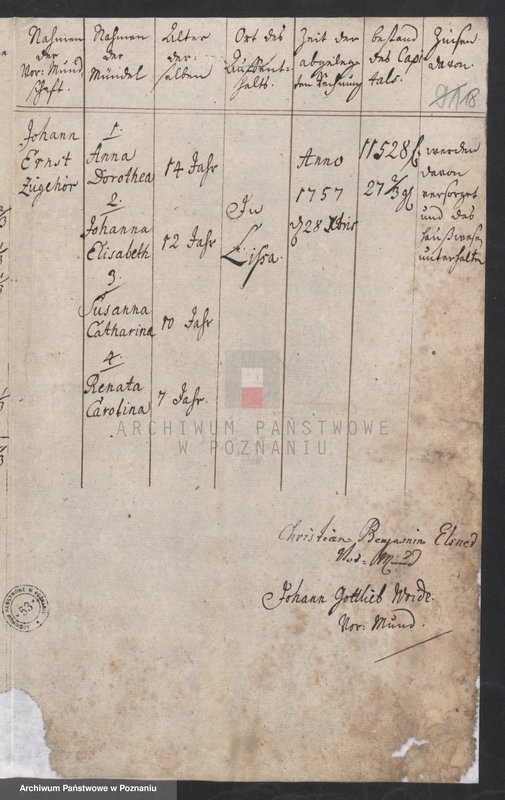 Nahmen
der
Vor: Mund
schafft.
Nahmen
der
Mündel
Alter
der-
selben
Ort des
Auffent-
halts.
Zeit der
abgeleg-
ten Rechnung
bestand
des Capi-
tals.
Zinsen
davon.
18
Johann
Ernst
Zugehör
1.
Anna
Dorothea
2.
Johanna
Elisabeth
3.
Susanna
Catharina
4.
Renata
Carolina
14 Jahr
12 Jahr
10 Jahr
7 Jahr.
In
Lissa.
Anno
1757
28 Xbris
11528 f
27 2/3 gl
werden
davon
versorget
und das
haußwesen
unterhalten
ARCHIWUM PAŃSTWOWE
W POZNANIU
Christian Benjamin
Vor. Mund
Johann Gottlieb Woide.
Vor: Mund.
ARCHIWUM PAŃSTWOWE W POZNANIU
53
Archiwum Państwowe w Poznaniu